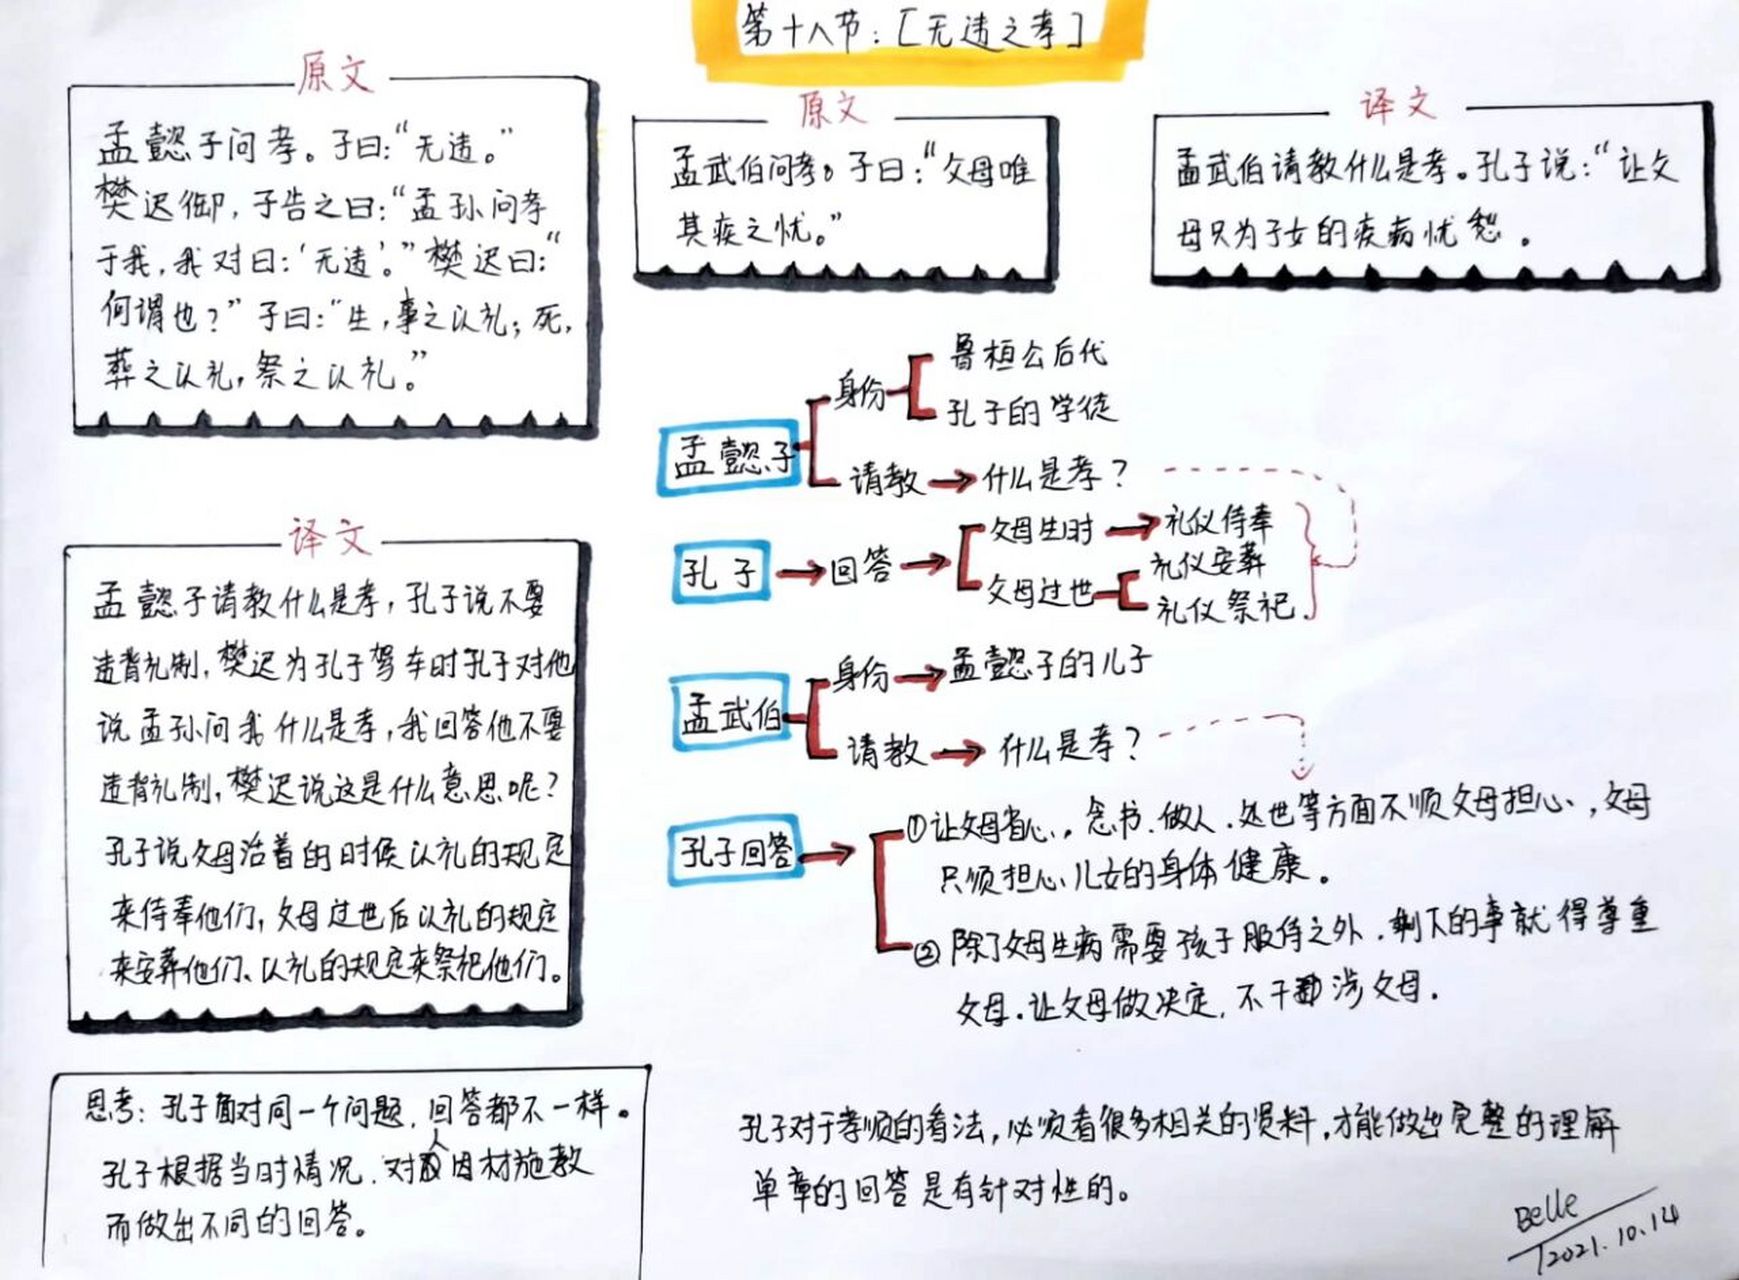 第十八节：[无违之孝]
原文
孟懿子问孝。子曰：“无违。”
樊迟御，子告之曰：“孟孙问孝
于我，我对曰：‘无违’。”樊迟曰：“
何谓也？”子曰：“生，事之以礼；死，
葬之以礼，祭之以礼。”
原文
孟武伯问孝。子曰：“父母唯
其疾之忧。”
译文
孟武伯请教什么是孝。孔子说：“让父
母只为子女的疾病忧愁。
译文
孟懿子请教什么是孝，孔子说不要
违背礼制，樊迟为孔子驾车时孔子对他
说孟孙问我什么是孝，我回答他不要
违背礼制，樊迟说这是什么意思呢？
孔子说父母活着的时候以礼的规定
来侍奉他们，父母过世后以礼的规定
来安葬他们、以礼的规定来祭祀他们。
孟懿子
身份
鲁桓公后代
孔子的学徒
请教→什么是孝？
孔子→回答→
父母生时→礼仪侍奉
父母过世
礼仪安葬
礼仪祭祀
孟武伯
身份→孟懿子的儿子
请教→什么是孝？
孔子回答→
①让父母省心，。念书、做人、处世等方面不须父母担心，父母
只须担心儿女的身体健康。
②除了父母生病需要孩子服侍之外，剩下的事就得尊重
父母。让父母做决定，不干涉父母。
思考：孔子面对同一个问题，回答都不一样。
孔子根据当时情况，对人因材施教
而做出不同的回答。
孔子对于孝顺的看法，必须看很多相关的资料，才能做出完整的理解
单章的回答是有针对性的。
Belle
2021.10.14